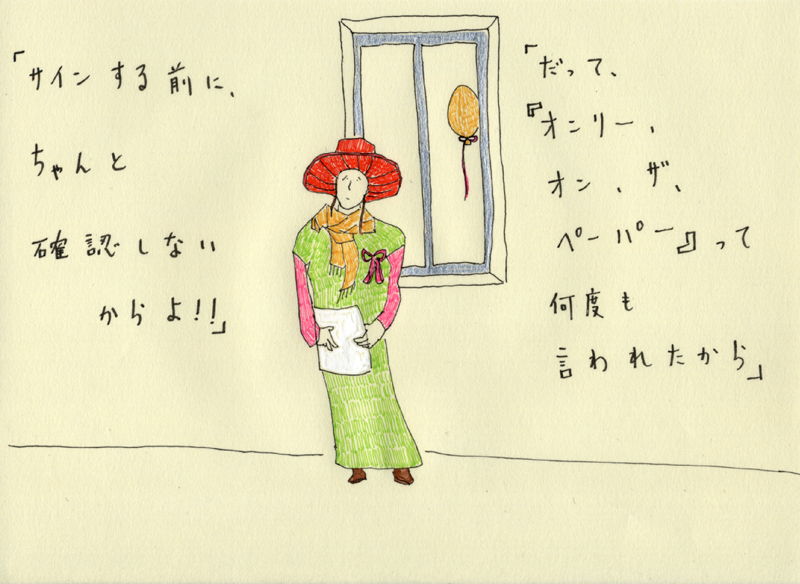 「サインする前に、
ちゃんと
確認しない
からよ!!」
「だって、
『オンリー、
オン、ザ、
ペーパー』って
何度も
言われたから」